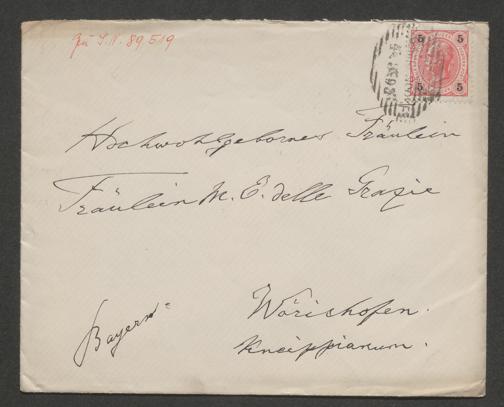 Zu I.N. 89.519
5 5
5 5
Hochwohlgebornes Fräulein
Fräulein M. E. delle Grazie
Wörishofen.
Bayern
Kneippianum.